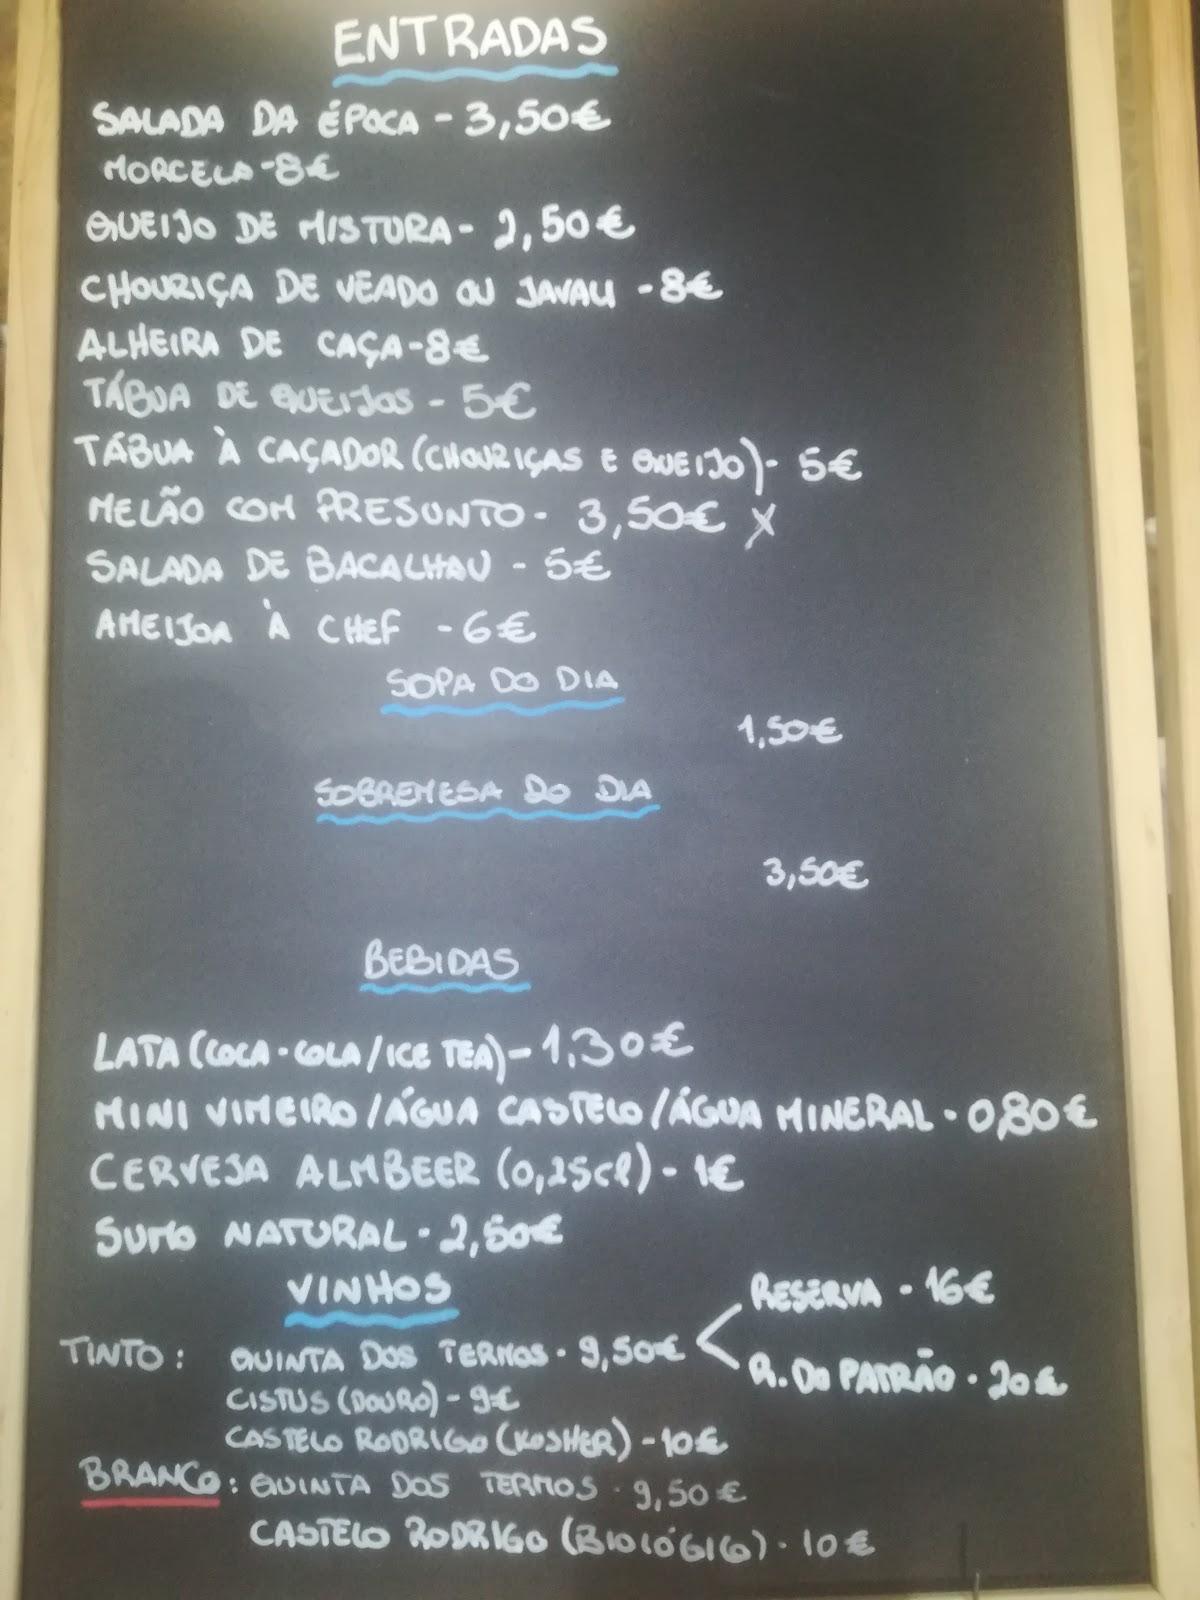 ENTRADAS
SALADA DA ÉPOCA - 3,50€
MORCELA - 8€
QUEIJO DE MISTURA - 2,50€
CHOURIÇA DE VEADO OU JAVALI - 8€
ALHEIRA DE CAÇA - 8€
TÁBUA DE QUEIJOS - 5€
TÁBUA À CAÇADOR (CHOURIÇAS E QUEIJO) - 5€
MELÃO COM PRESUNTO - 3,50€ X
SALADA DE BACALHAU - 5€
AMEIJOA À CHEF - 6€
SOPA DO DIA
1,50€
SOBREMESA DO DIA
3,50€
BEBIDAS
LATA (COCA-COLA/ICE TEA) - 1,30€
MINI VIMEIRO/ÁGUA CASTELO/ÁGUA MINERAL - 0,80€
CERVEJA ALMBEER (0,25cl) - 1€
SUMO NATURAL - 2,50€
VINHOS
RESERVA - 16€
TINTO: QUINTA DOS TERMOS - 9,50€
R. DO PATRÃO - 20€
CISTUS (DOURO) - 9€
CASTELO RODRIGO (KOSHER) - 10€
BRANCO: QUINTA DOS TERMOS - 9,50€
CASTELO RODRIGO (BIOLÓGICO) - 10€